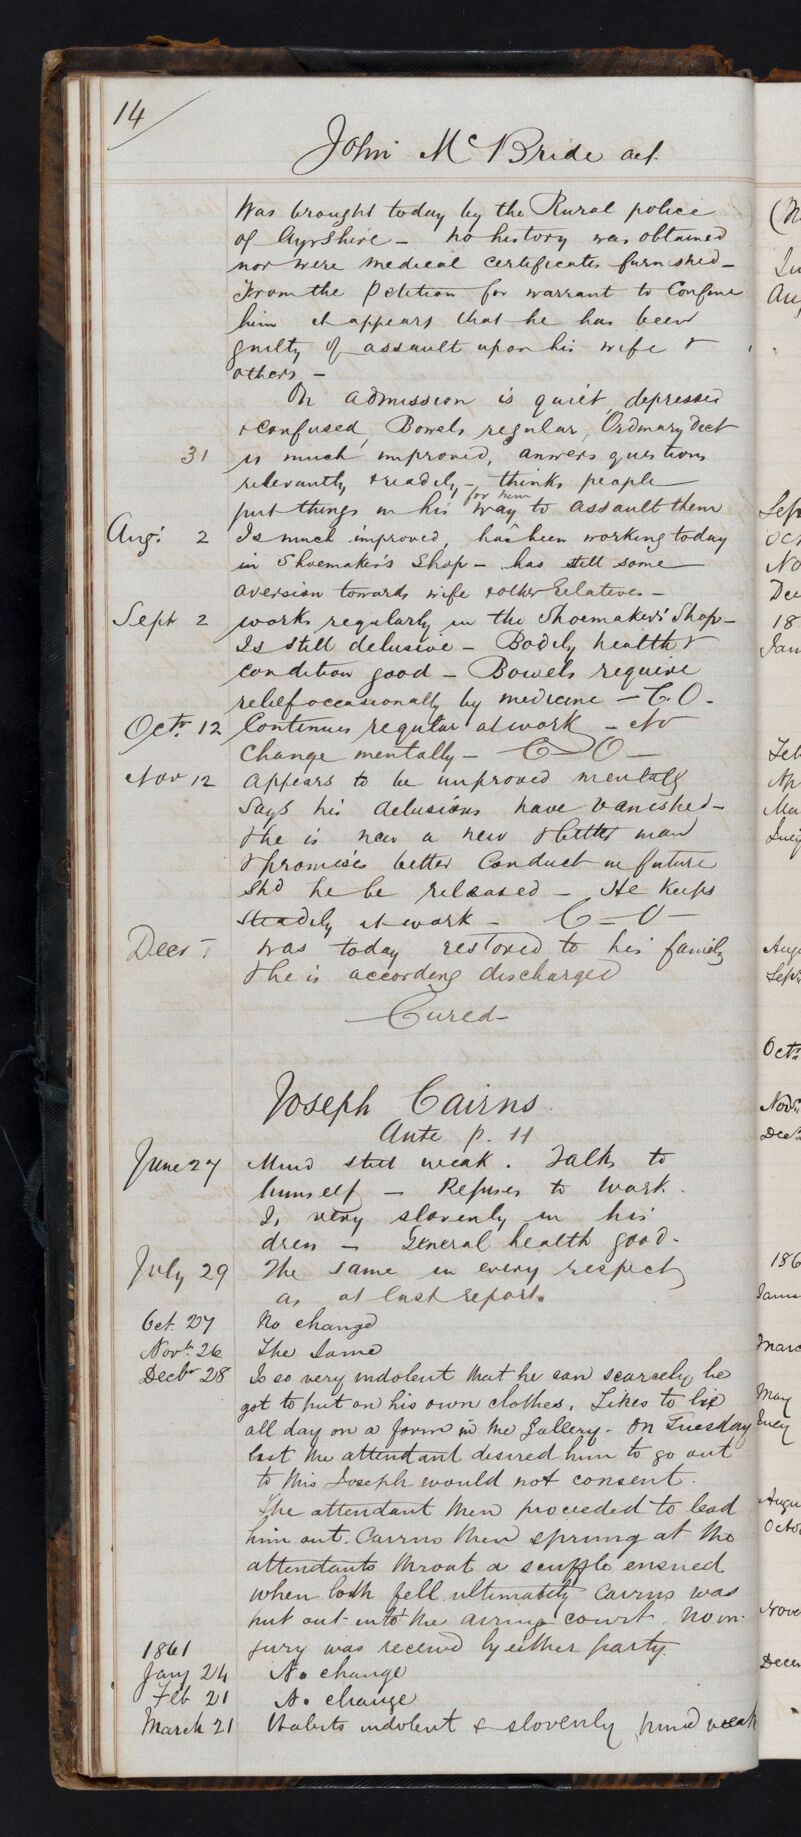 14
John McBride
Was brought today by the Rural police
of Ayrshire – no history was obtained
nor were medical certificates furnished –
From the Petition for warrant to Confine
him it appears that he has been
guilty of assault upon his wife &
others –
On admission is quiet, depressed
& confused, Bowels regular, Ordinary Diet
31 is much improved, answers questions
relevantly & readily – thinks people
put things in his way for him to assault them
Aug: 2 Is much improved, has been working today
in Shoemaker's Shop – has still some
aversion towards wife & other relatives –
Sept 2 works regularly in the Shoemaker's Shop –
Is still delusive – Bodily health &
condition good – Bowels require
relief occasionally by medicine – C.O –
Octr 12 Continues regular at work – No
change mentally – C O –
Nov 12 appears to be improved mentally
Says his delusions have vanished –
& he is now a new & better man
& promises better Conduct in future
Shd he be released – He keeps
steadily at work – C – O –
Decr was today restored to his family
& he is according discharged
Cured –
Joseph Cairns
Ante p. 11
June 27 Mind still weak. Talks to
himself – Refuses to work.
Is very slovenly in his
dress – General health good –
July 29 The same in every respect
as at last report.
Oct. 27 No change
Novbr 26 The Same
Decbr 28 Is so very indolent that he can scarcely be
got to put on his own clothes. Likes to lie
all day on a form in the Gallery – On Tuesday
last the attendant desired him to go out
to this Joseph would not consent.
The attendant then proceeded to lead
him out. Cairns then sprung at the
attendants throat a scuffle ensued
when both fell ultimately Cairns was
put out into the airing court. No in-
1861 jury was received by either party.
Jany 24 No change
Feb 21 No change
March 21 Habits indolent & slovenly, mind weak